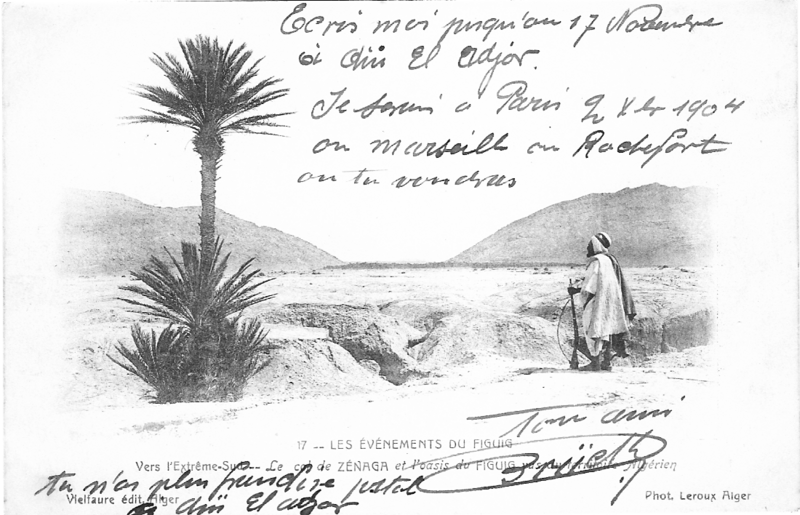 Ecris moi jusqu'au 17 Novembre
à El Adjor.
Je serai à Paris 2 Xbr 1904
ou marseille ou Rochefort
ou tu voudras
Ton ami
17 -- LES ÉVÉNEMENTS DU FIGUIG
Vers l'Extrême-Sud -- Le col de ZÉNAGA et l'oasis du FIGUIG vus du territoire Algérien
tu n'as plus postal
à El adjor
Vielfaure édit. Alger
Phot. Leroux Alger